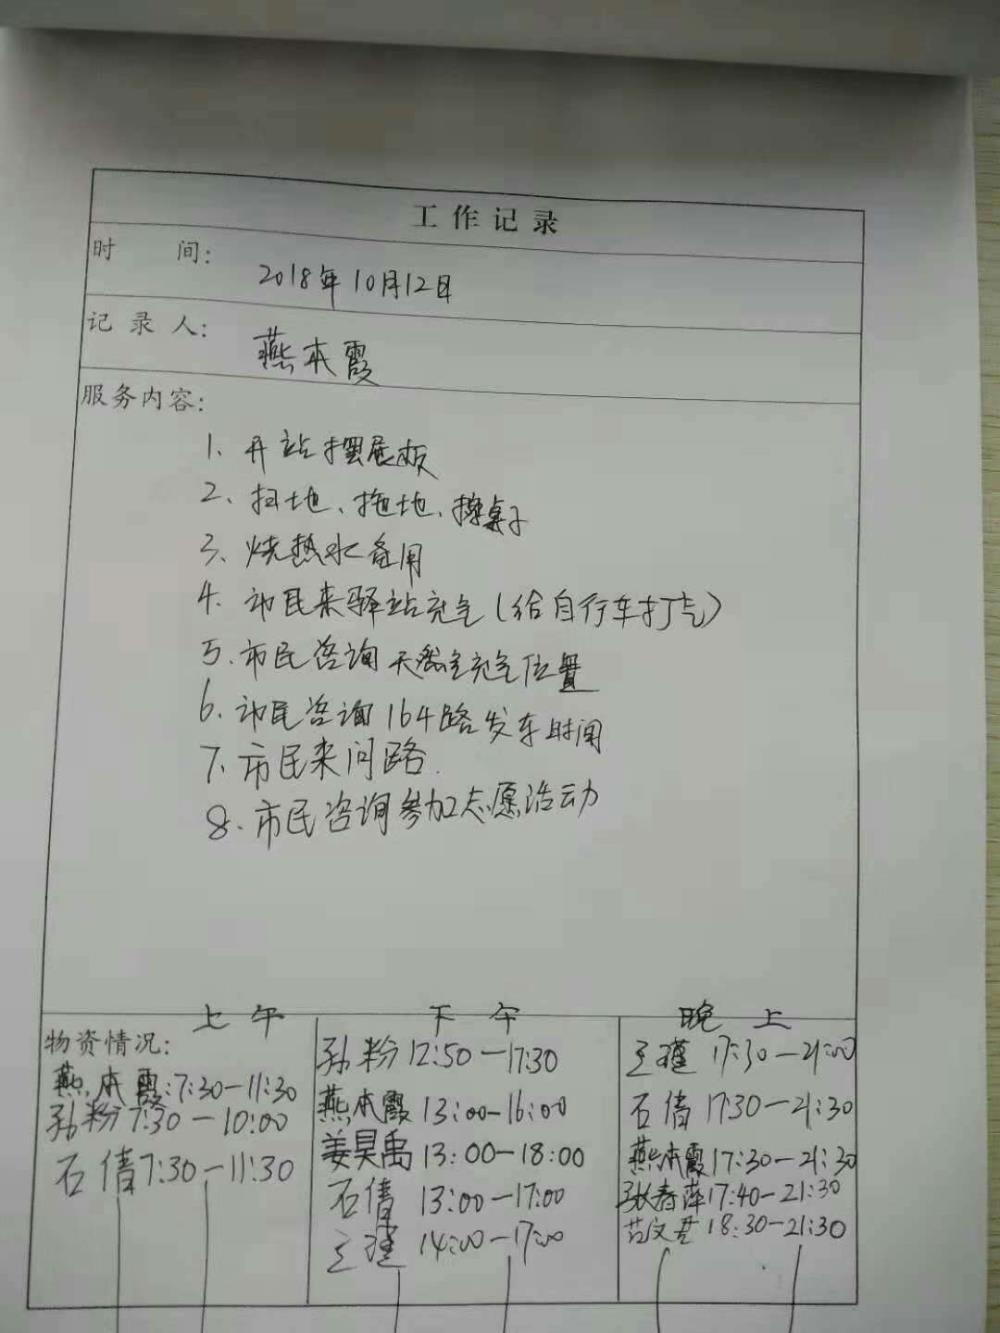 工作记录
时 间: 2018年10月12日
记录人: 燕本霞
服务内容:
1、开站摆展板
2、扫地、拖地、擦桌子
3、烧热水备用
4、市民来驿站充气(给自行车打气)
5、市民咨询天然气充气位置
6、市民咨询164路发车时间
7、市民来问路.
8、市民咨询参加志愿活动
上午
物资情况:
燕本霞:7:30-11:30
孙粉7:30-10:00
石倩7:30-11:30
下午
孙粉12:50-17:30
燕本霞13:00-16:00
姜昊禹13:00-18:00
石倩13:00-17:00
14:00-17:00
晚上
17:30-21:00
石倩17:30-21:30
燕本霞17:30-21:30
张春萍17:40-21:30
18:30-21:30